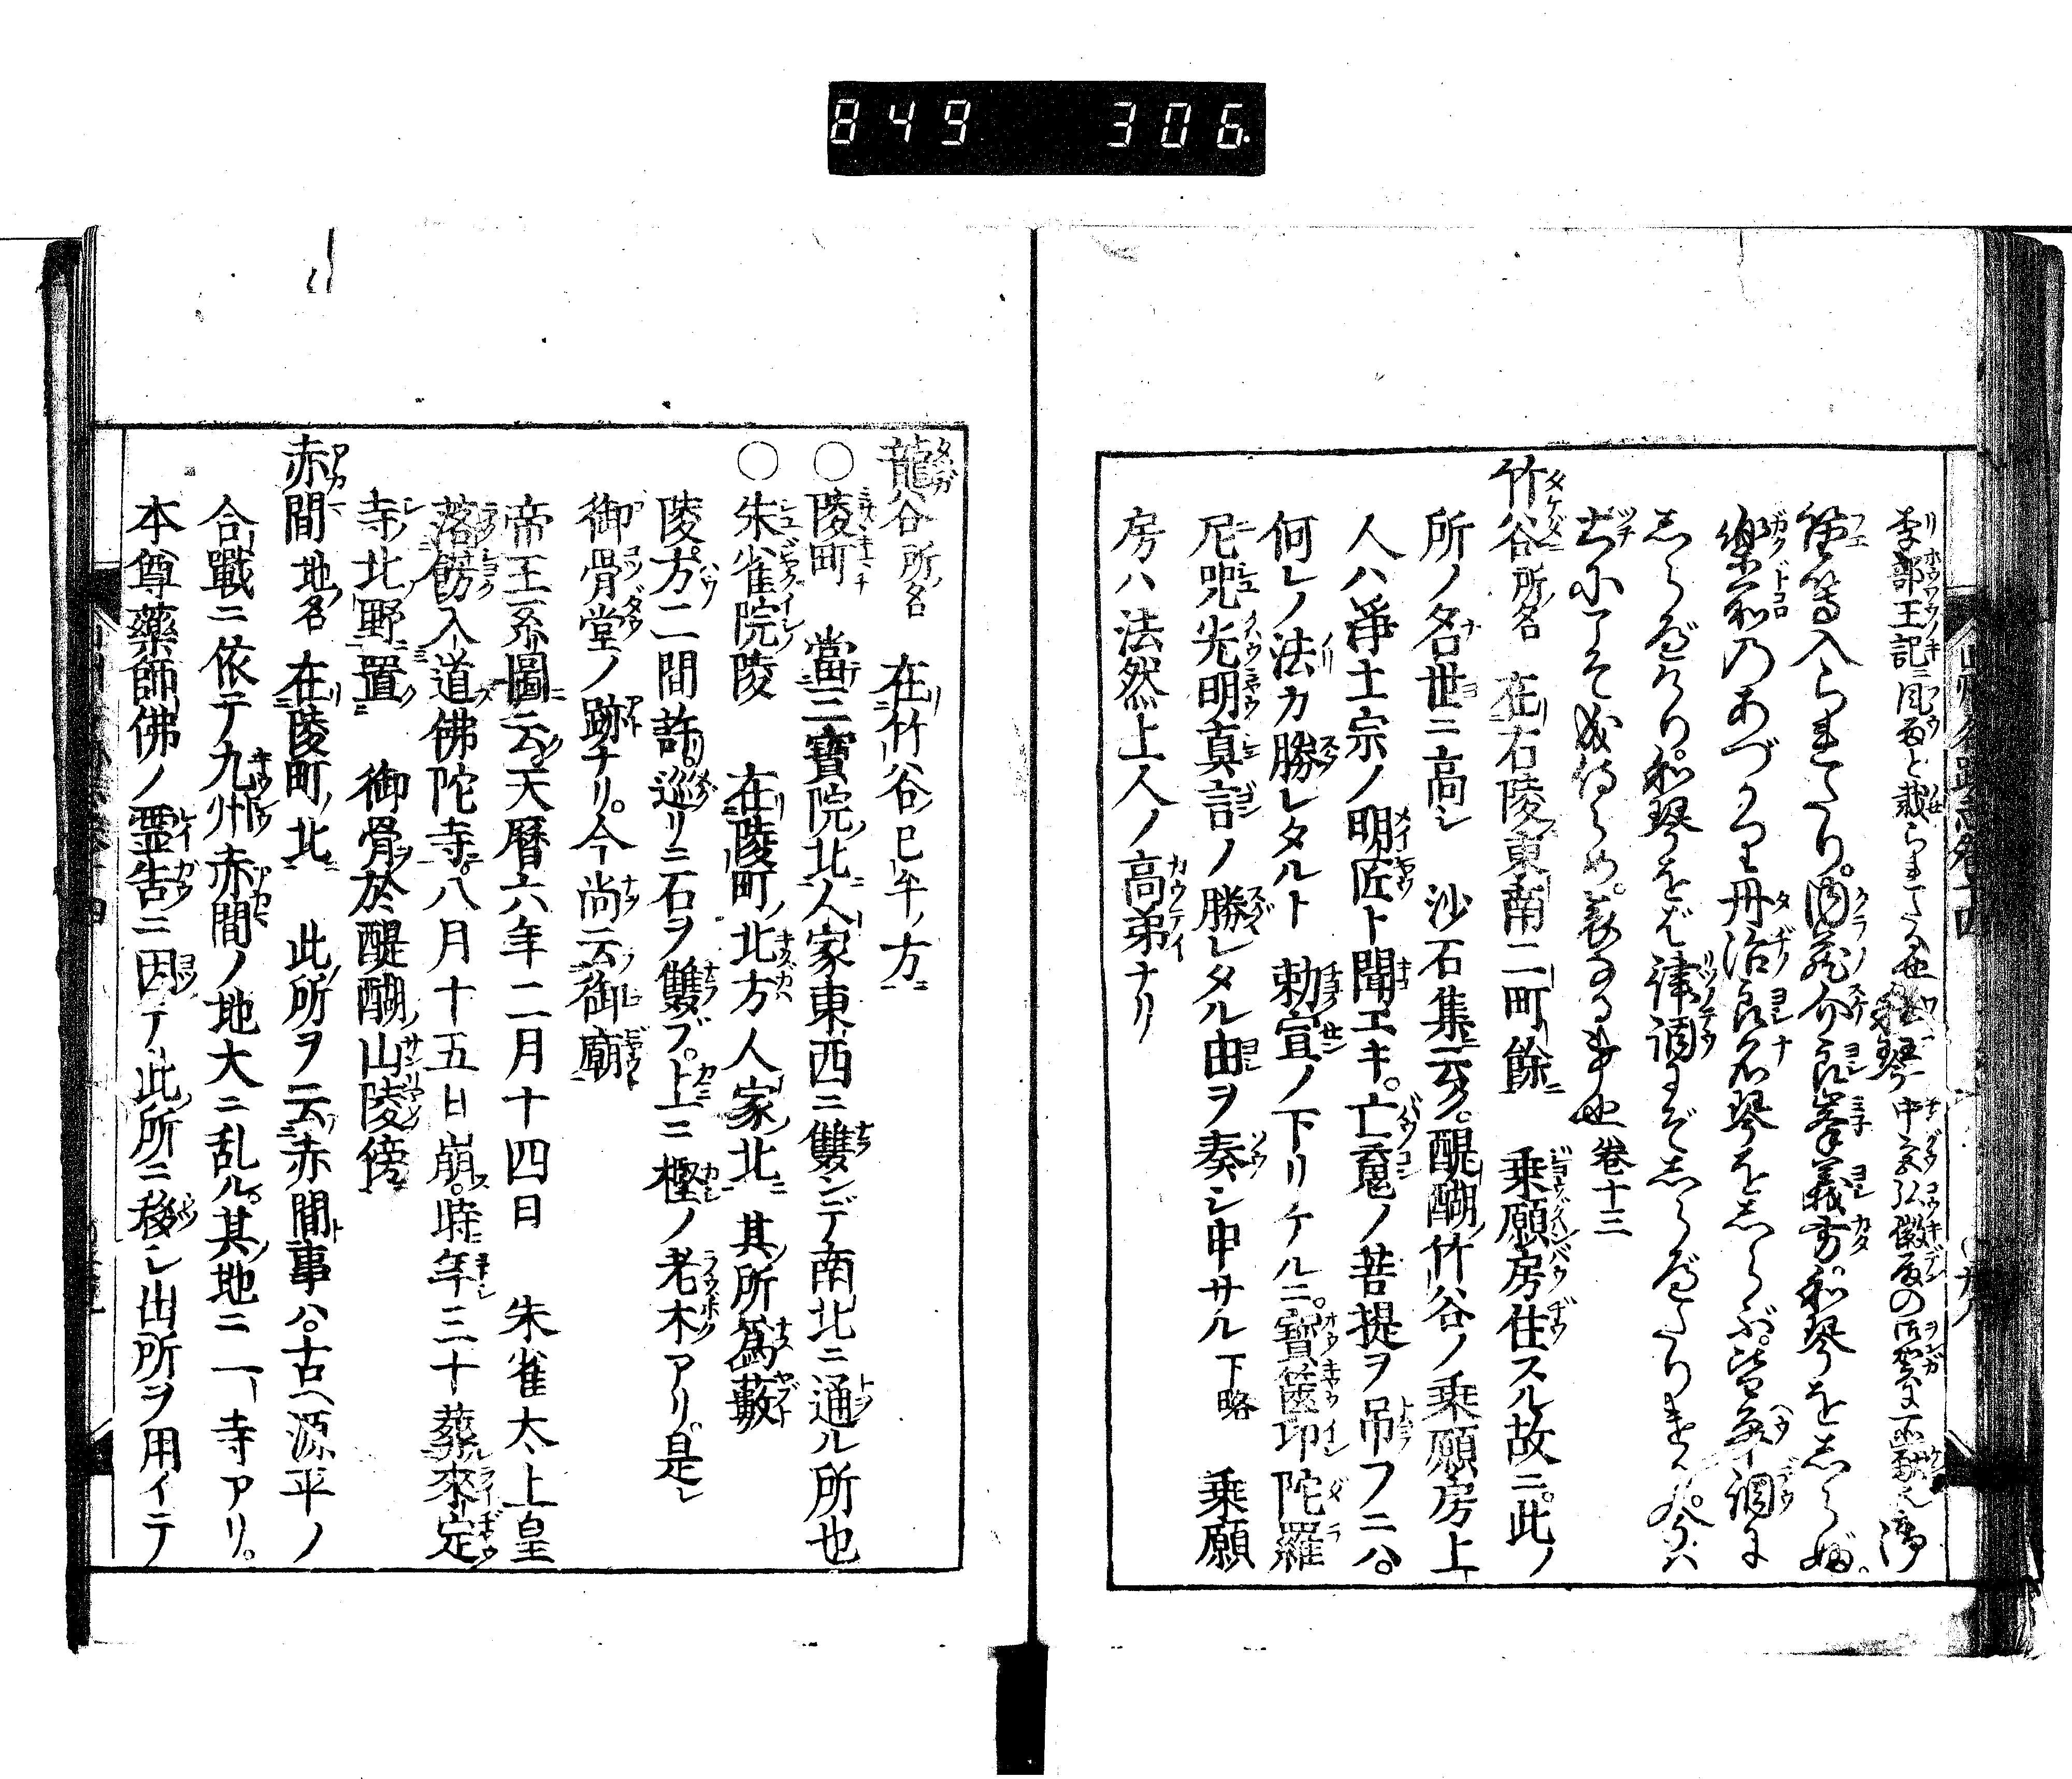 849 306
李部王記ニ鳳香と載られたる也和琴中宮弘徽殿の御賀に正献光御
笛等入られたり。内蔵介良峯義方和琴をしらぶ。
樂所のあづかり丹治良名琴をしらぶ。皆平調に
しらべけり。和琴をば律調にぞしらべたりける。今ハ
竹谷所ノ名 在右陵東南二町餘ニ 乗願房住スル故ニ。此ノ
所ノ名世ニ高シ 沙石集ニ云ク。醍醐竹谷ノ乗願房上
人ハ淨土宗ノ明匠ト聞エキ。亡魂ノ菩提ヲ吊フニハ。
何レノ法カ勝レタルト 勅宣ノ下リケルニ。寳篋印陀羅
尼呪光明真言ノ勝レタル由ヲ奏シ申サル下略 乗願
房ハ法然上人ノ高弟ナリ
龍谷所ノ名 在竹谷ノ巳午ノ方ニ
○陵町 當三寳院ノ北ニ人家東西ニ雙ンデ南北ニ通ル所也
○朱雀院陵 在陵町ノ北方人家ノ北ニ 其所爲藪
陵方二間許。巡リニ石ヲ雙ブ。上ニ樫ノ老木アリ。是レ
御骨堂ノ跡ナリ。今尚云御廟
帝王系圖ニ云ク天暦六年二月十四日 朱雀太上皇
落餝入道佛陀寺。八月十五日崩。時年三十葬來定
寺北野ニ置 御骨ヲ於醍醐山陵傍ニ
赤間地ノ名 在陵町ノ北ニ 此所ヲ云赤間ト事ハ。古ヘ源平ノ
合戰ニ依テ九州赤間ノ地大ニ乱ル。其ノ地ニ一寺アリ。
本尊藥師佛ノ霊告ニ因テ此ノ所ニ移シ出所ヲ用イテ